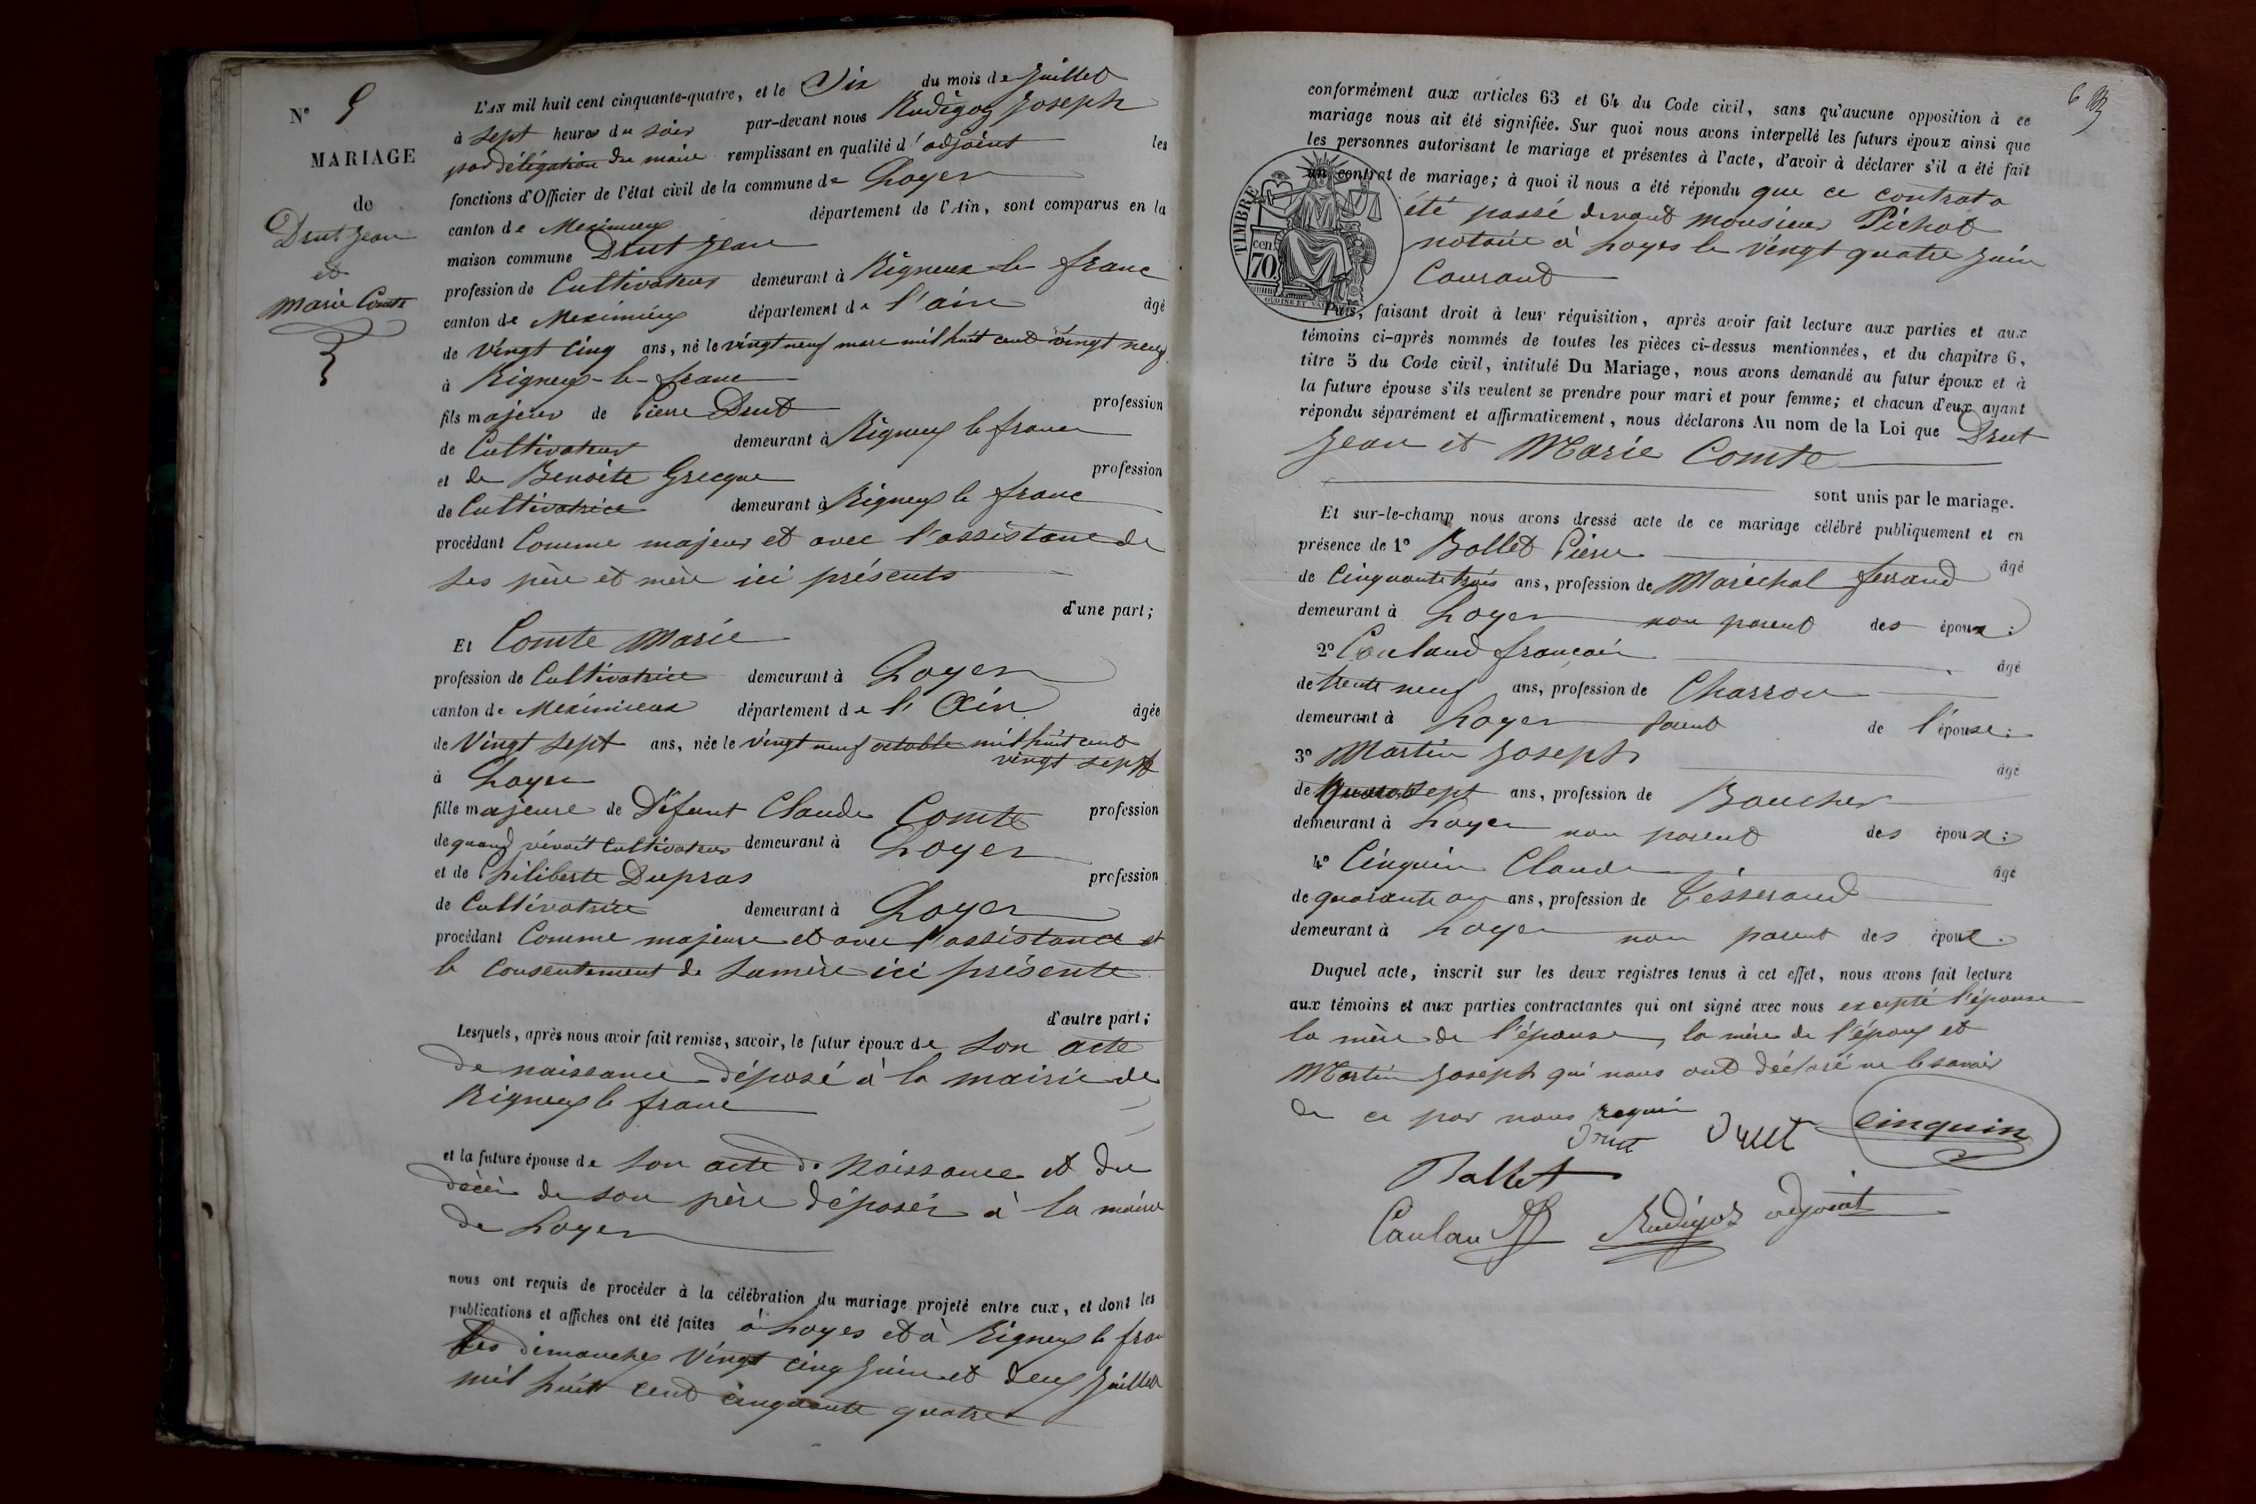 N° 9
MARIAGE
de
Drut Jean
et
Marie Comte
L'AN mil huit cent cinquante-quatre, et le Six du mois de Juillet
à sept heures du soir par-devant nous Rudigoz Joseph
par délégation du maire remplissant en qualité d'adjoint les
fonctions d'Officier de l'état civil de la commune de Loyes
canton de Meximieux département de l'Ain, sont comparus en la
maison commune Drut Jean
profession de Cultivateur demeurant à Rigneux-le franc
canton de Meximieux département de l'ain âgé
de vingt cinq ans, né le vingt neuf mars mil huit cent vingt neuf
à Rigneux-le-franc
fils majeur de Pierre Drut profession
de Cultivateur demeurant à Rigneux le franc
et de Benoite Grecque profession
de Cultivatrice demeurant à Rigneux le franc
procédant Comme majeur et avec l'assistance de
ses père et mère ici présents
d'une part;
Et Comte Marie
profession de Cultivatrice demeurant à Loyes
canton de Meximieux département de l'Ain âgée
de Vingt sept ans, née le vingt neuf octobre mil huit cent
vingt sept
à Loyes
fille majeure de Défunt Claude Comte profession
de quand vivait Cultivateur demeurant à Loyes
et de Philiberte Dupras profession
de Cultivatrice demeurant à Loyes
procédant Comme majeure et avec l'assistance et
le consentement de sa mère ici présente
d'autre part;
Lesquels, après nous avoir fait remise, savoir, le futur époux de son acte
de naissance déposé à la mairie de
Rigneux le franc
et la future épouse de son acte de Naissance et du
décès de son père déposés à la mairie
de Loyes
nous ont requis de procéder à la célébration du mariage projeté entre eux, et dont les
publications et affiches ont été faites à Loyes et à Rigneux le franc
les dimanches vingt cinq Juin et deux Juillet
mil huit cent cinquante quatre
6
conformément aux articles 63 et 64 du Code civil, sans qu'aucune opposition à ce
mariage nous ait été signifiée. Sur quoi nous avons interpellé les futurs époux ainsi que
les personnes autorisant le mariage et présentes à l'acte, d'avoir à déclarer s'il a été fait
un contrat de mariage; à quoi il nous a été répondu que ce contrat a
été passé devant monsieur Pichot
notaire à Loyes le vingt quatre juin
Courant
TIMBRE
cen
70
Puis, faisant droit à leur réquisition, après avoir fait lecture aux parties et aux
témoins ci-après nommés de toutes les pièces ci-dessus mentionnées, et du chapitre 6,
titre 5 du Code civil, intitulé Du Mariage, nous avons demandé au futur époux et à
la future épouse s'ils veulent se prendre pour mari et pour femme; et chacun d'eux ayant
répondu séparément et affirmativement, nous déclarons Au nom de la Loi que Drut
Jean et Marie Comte
sont unis par le mariage.
Et sur-le-champ nous avons dressé acte de ce mariage célébré publiquement et en
présence de 1° Bollet Pierre âgé
de Cinquante trois ans, profession de Maréchal ferrand
demeurant à Loyes non parent des époux:
2° Couland françois âgé
de trente neuf ans, profession de Charron
demeurant à Loyes parent de l'épouse:
3° Martin Joseph âgé
de sept ans, profession de Boucher
demeurant à Loyes non parent des époux:
4° Cinquin Claude âgé
de quarante ans, profession de Tisserand
demeurant à Loyes non parent des époux.
Duquel acte, inscrit sur les deux registres tenus à cet effet, nous avons fait lecture
aux témoins et aux parties contractantes qui ont signé avec nous excepté l'épouse
la mère de l'épouse, la mère de l'époux et
Martin Joseph qui nous ont déclaré ne le savoir
de ce par nous requis
Drut Drut Cinquin
Bollet
Coulan Rudigoz adjoint